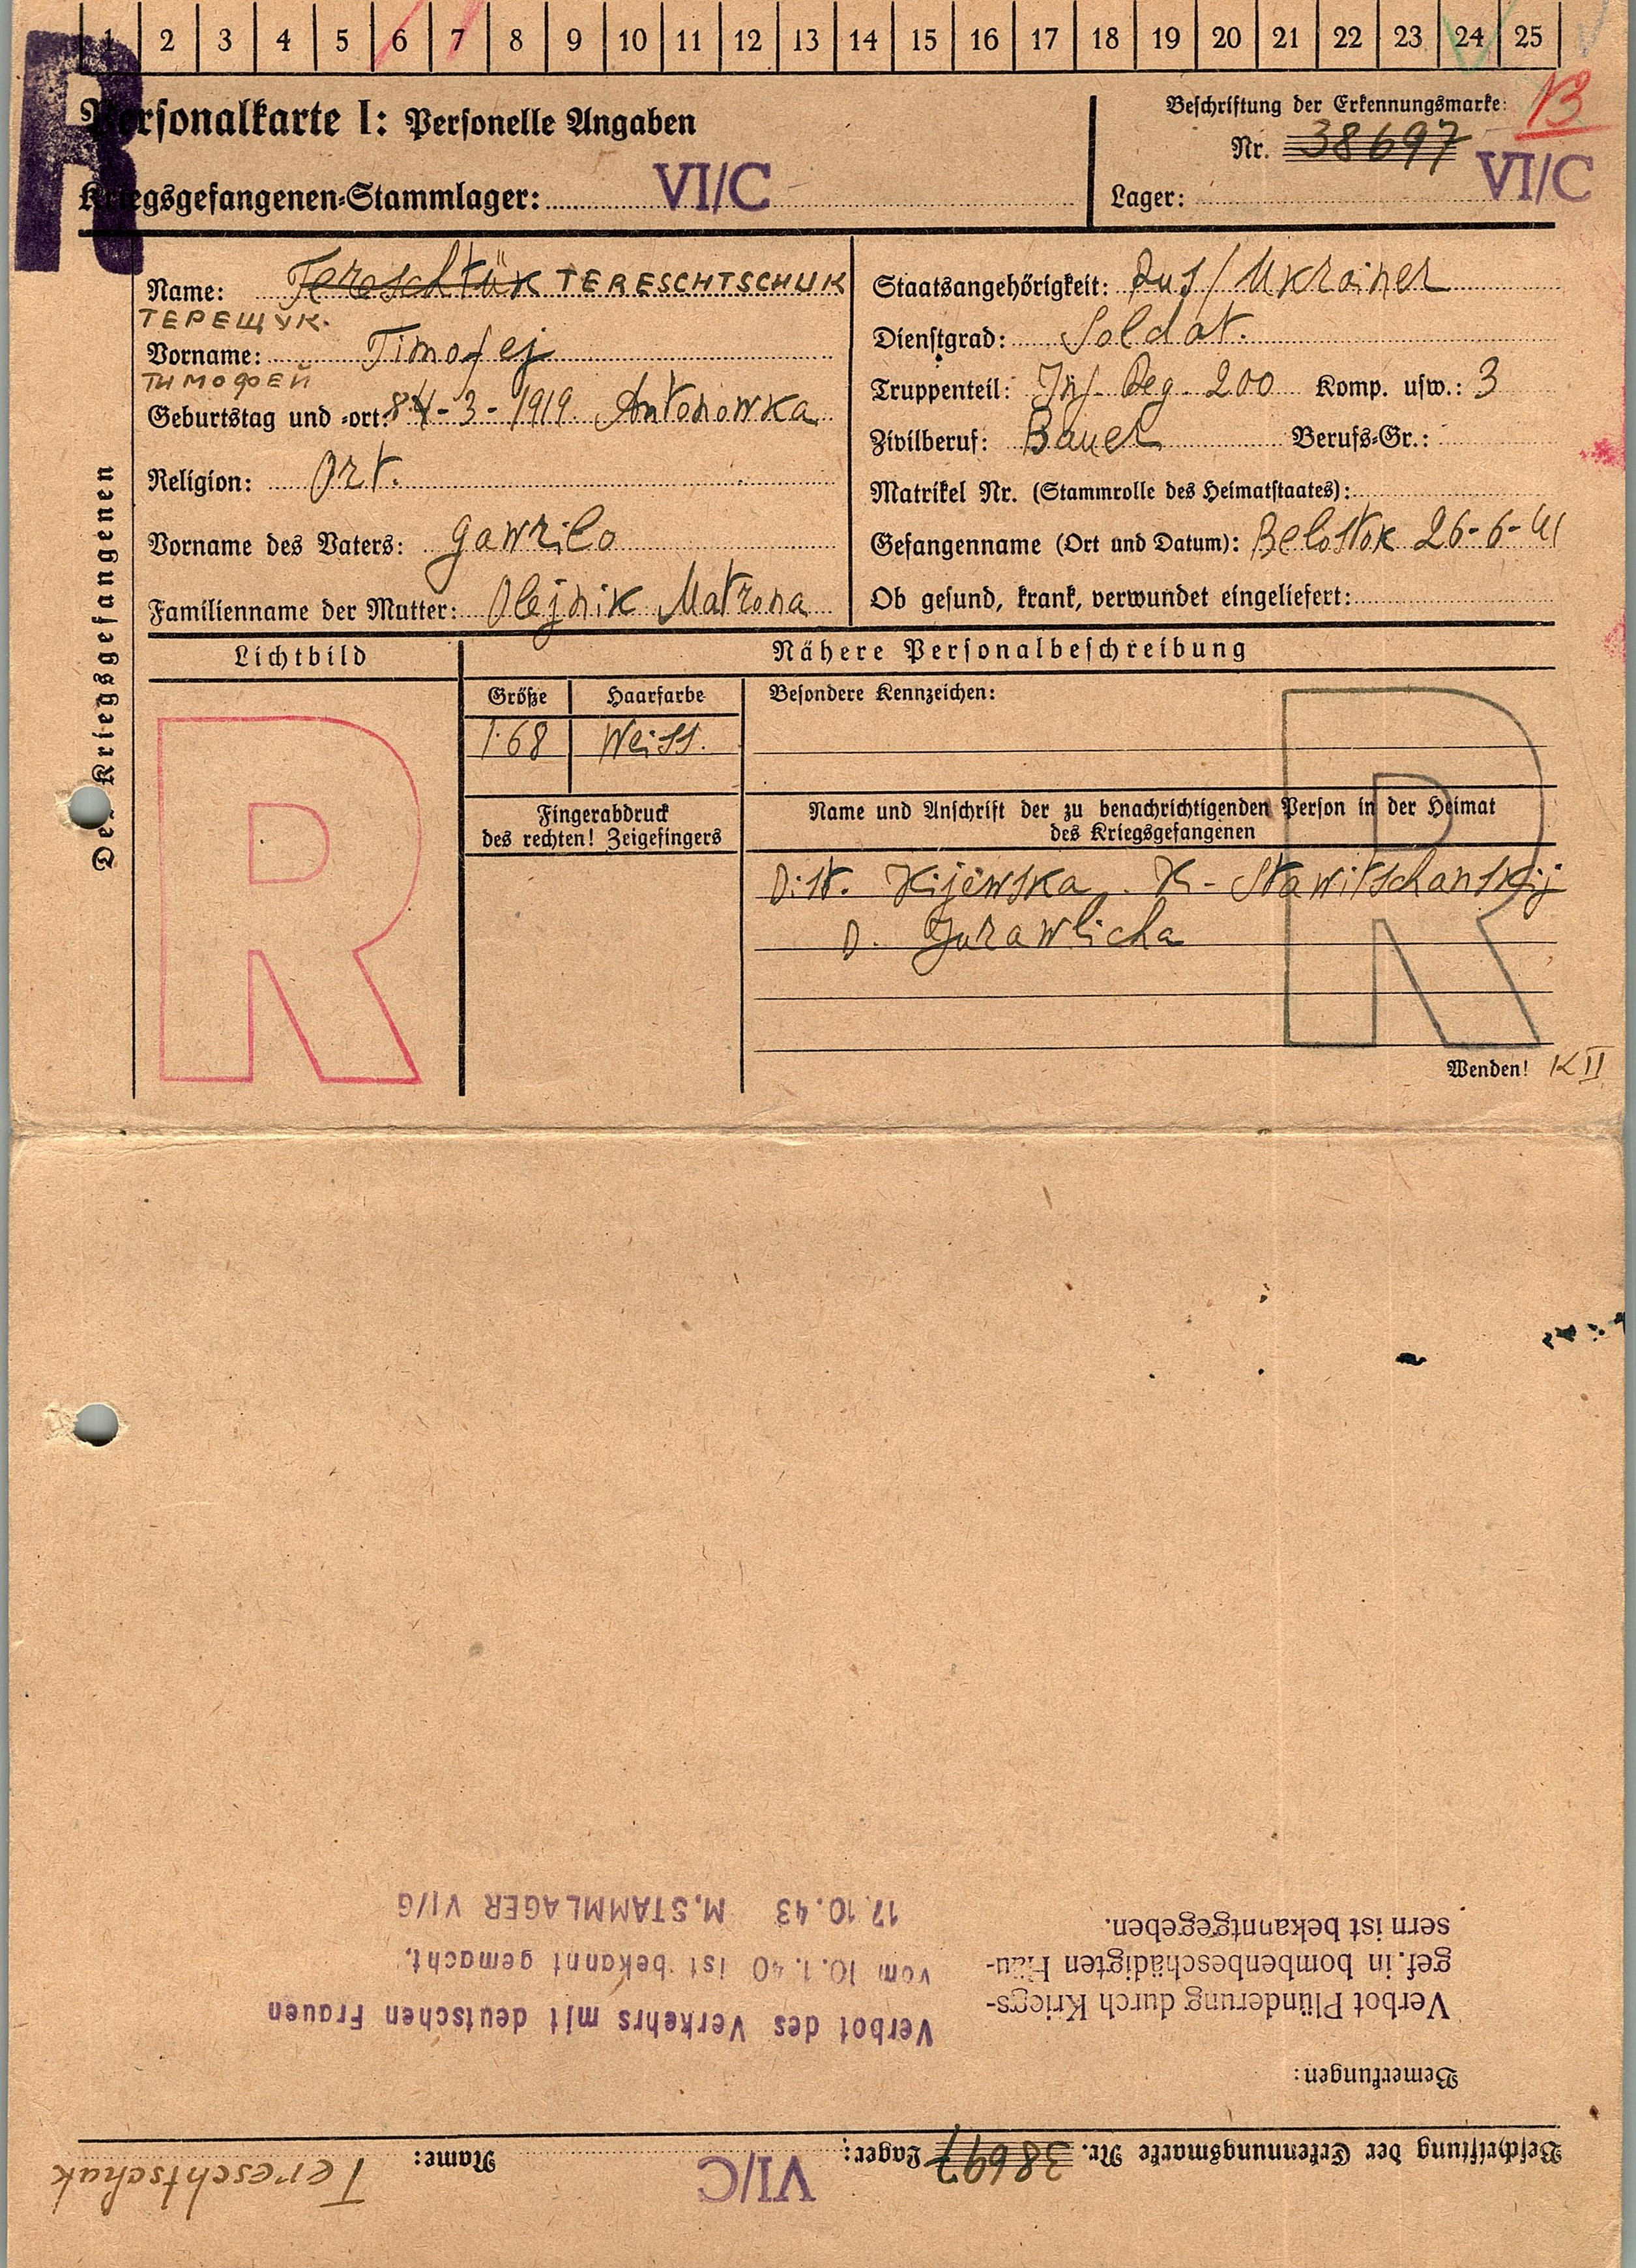 1 2 3 4 5 6 7 8 9 10 11 12 13 14 15 16 17 18 19 20 21 22 23 24 25
R
Personalkarte I: Personelle Angaben
Kriegsgefangenen-Stammlager: VI/C
Beschriftung der Erkennungsmarke:
Nr. 38697
Lager: VI/C
Des Kriegsgefangenen
Name: Tereschtük TERESCHTSCHUK
ТЕРЕЩУК.
Vorname: Timofej
ТИМОФЕЙ
Geburtstag und -ort: 8.-3-1919. Antonowka
Religion: Ort.
Vorname des Vaters: Gawrilo
Familienname der Mutter: Olejnik Matrona
Staatsangehörigkeit: Rus/Ukrainer
Dienstgrad: Soldat.
Truppenteil: Inf. Reg. 200 Komp. usw.: 3
Zivilberuf: Bauer Berufs-Gr.:
Matrikel Nr. (Stammrolle des Heimatstaates):
Gefangenname (Ort und Datum): Belostok 26-6-41
Ob gesund, krank, verwundet eingeliefert:
Lichtbild
R
Nähere Personalbeschreibung
Größe Haarfarbe
1.68 Weiss.
Besondere Kennzeichen:
R
Fingerabdruck
des rechten! Zeigefingers
Name und Anschrift der zu benachrichtigenden Person in der Heimat
des Kriegsgefangenen
Dist. Kijewska, K- Stawitschanskij
D. Jurawlicha
Wenden! K II
Beschriftung der Erkennungsmarke Nr. 38697 Lager: VI/C Name: Tereschtschuk
Bemerkungen:
Verbot Plünderung durch Kriegs-
gef. in bombenbeschädigten Häu-
sern ist bekanntgegeben.
Verbot des Verkehrs mit deutschen Frauen
vom 10.1.40 ist bekannt gemacht.
17.10.43 M.STAMMLAGER VI/G